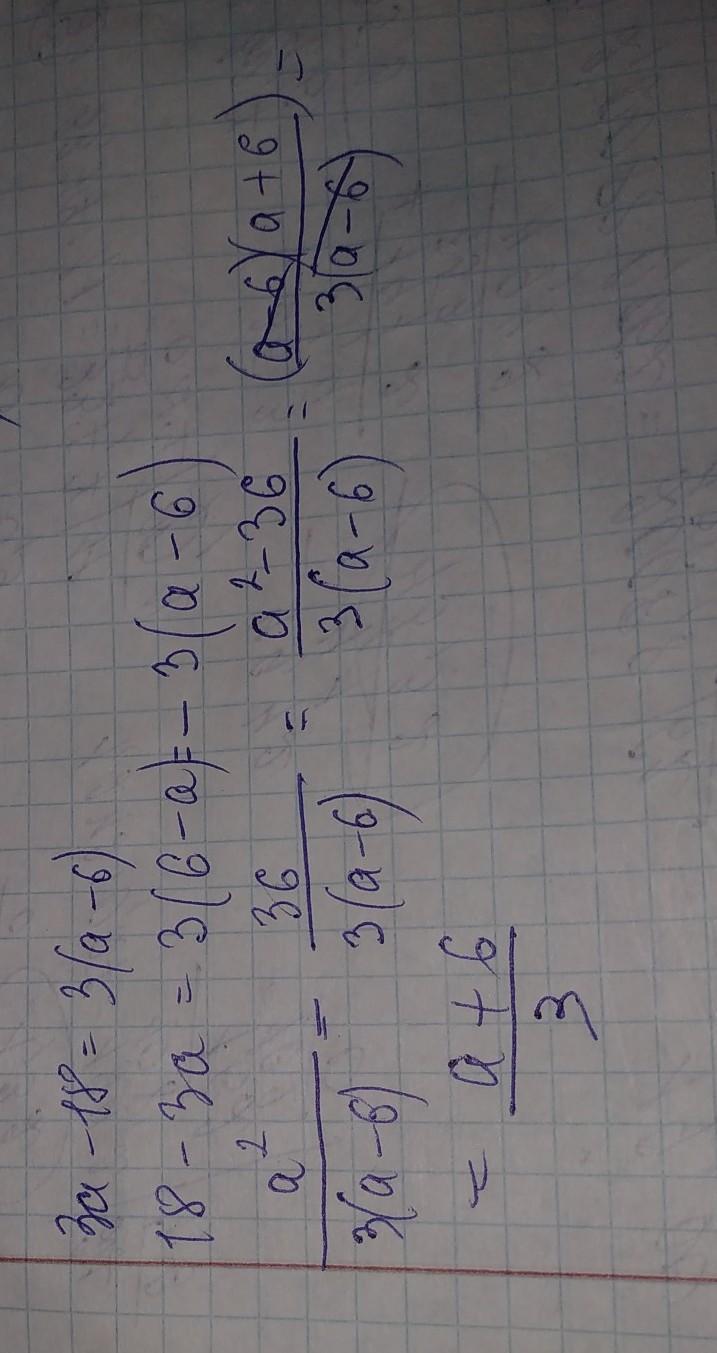 3a - 18 = 3(a - 6)
18 - 3a = 3(6 - a) = - 3(a - 6)
a² / 3(a - 6) = 36 / 3(a - 6) = a² - 36 / 3(a - 6) = (a - 6)(a + 6) / 3(a - 6) =
= a + 6 / 3